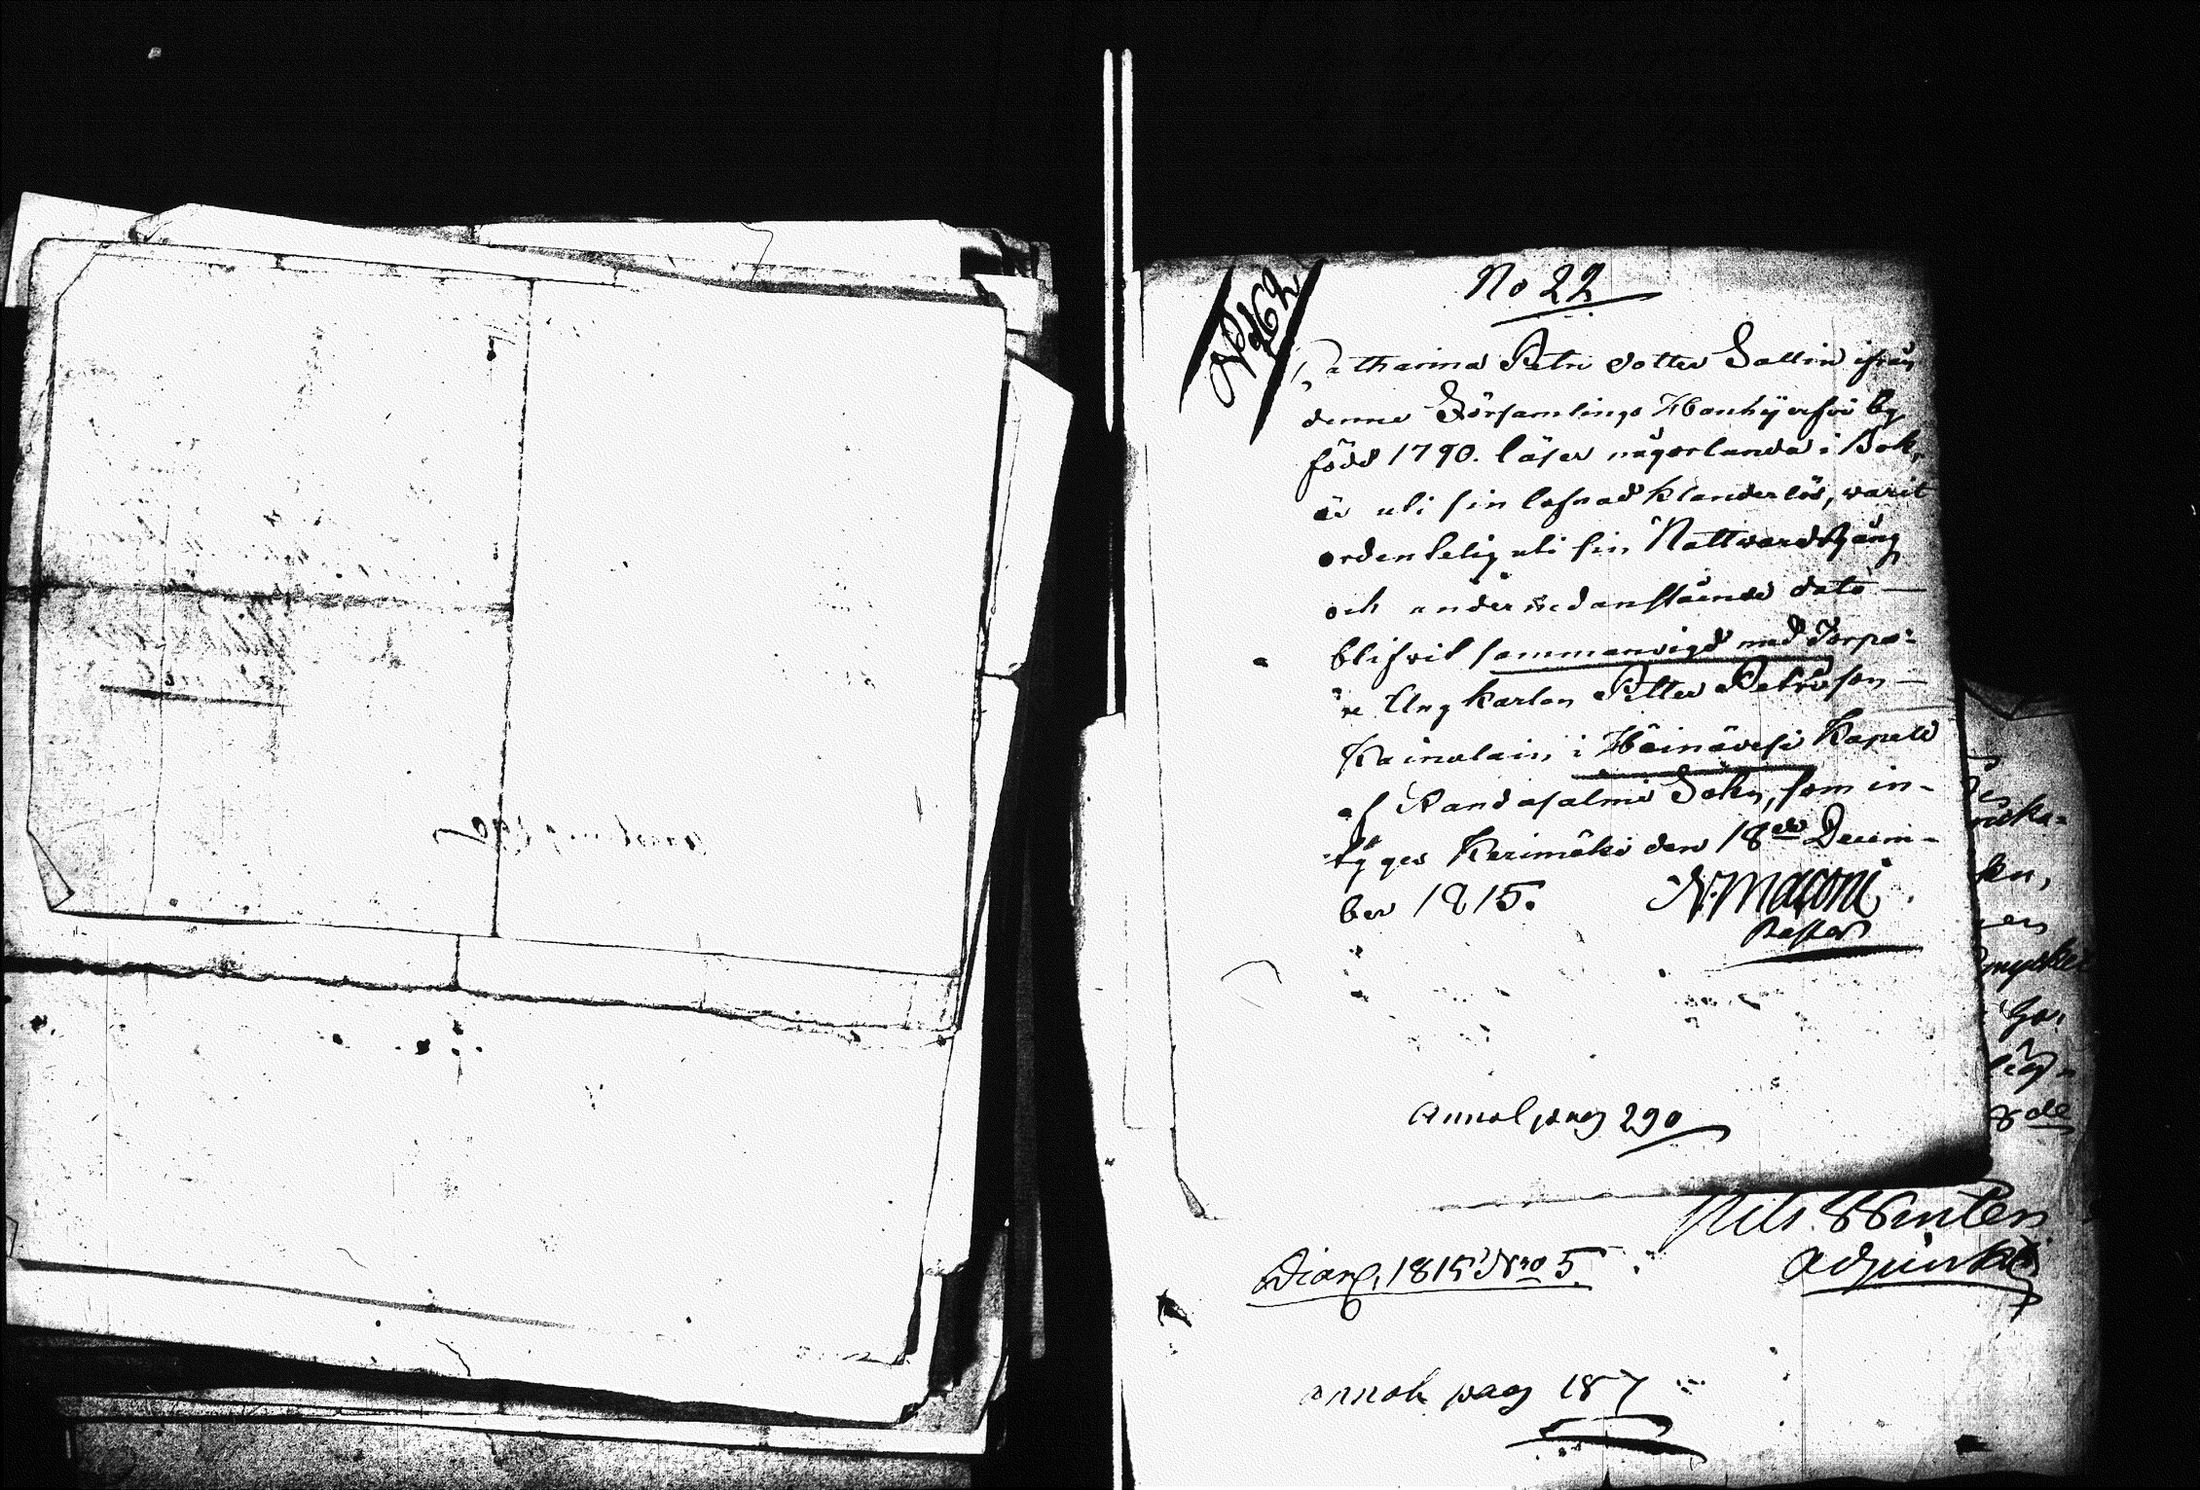 No 22
No 162
Catharina Petri dotter Sallin ifrån
denne Församlings by
född 1790. läser någorlunda i Bok,
är uti sin lefnad klanderlös, warit
ordentelig uti sin Nattwardsgång
och under nedanstående dato —
blifwit sammanvigd med Torpa-
re Ungkarlen Petter Petersson —
Kainulain i Heinävesi Kapell
af Randasalmi Sokn, som in-
tygas Kerimäki den 18de Decem-
ber 1815. N. Maconi
Pastor
Annot pag 290
Nils
Adjunkt
Diar. 1815 Nro 5
annot pag 187
ken,
mycket